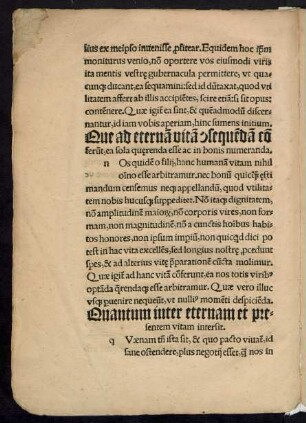 lius ex meipso inuenisse, ꝓfitear. Equidem hoc ip̄m
moniturus venio, nō oportere vos eiusmodi viris
ita mentis vestrę gubernacula permittere, vt qua
cunq̨ ducant, ea sequamini: sed id dūtaxat, quod vti
litatem affert ab illis accipiētes, scire etiā: si sit opus:
contēnere. Quæ igit̄ ea sint, & quēadmodū discer
nantur, id iam vobis aperiam, hinc sumens initium.
Que ad eternā vitā ↄsequēdā cō
ferūt, ea sola quęrenda esse ac in bonis numeranda.
n Os quidē o filij, hanc humanā vitam nihil
oīno esse arbitramur, nec bonū quicq̄̄ ęsti
mandum censemus neq̨ appellandū, quod vtilitatē
nobis hucusq̨ suppeditet. Nō itaq̨ dignitatem,
nō amplitudinē maioꝝ, nō corporis vires, non for
mam, non magnitudinē, nō a cunctis hoībus habi
tos honores, non ipsum impiū, non quicq̄̄ dici po
test in hac vita excellēs, sed longius nostrę ꝓcedunt
spes, & ad alterius vitę p̄parationē cūcta molimur.
Quæ igit̄ ad hanc vitā cōferunt, ea nos totis virib9
optāda q̄rendaq̨ esse arbitramur. Quæ vero illuc
vsq̨ puenire nequeūt, vt nulli9 momēti despiciēda.
Quantum inter eternam et pre
sentem vitam intersit.
q Væenam tn̄ ista sit, & quo pacto viuat̄, id
sane ostendere, plus negotij esset, q̄̄ nos in